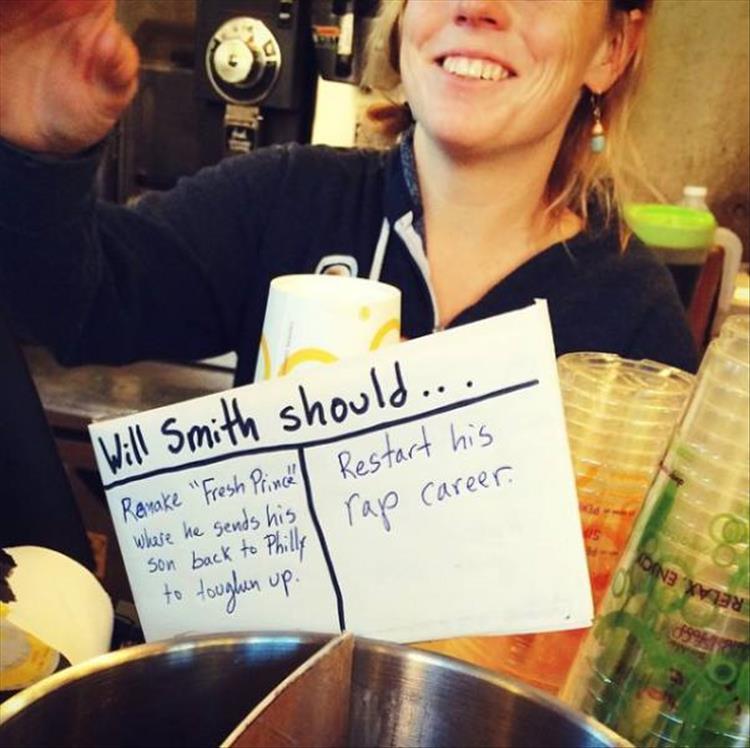 Will Smith should...
Remake "Fresh Prince"
where he sends his
son back to Philly
to toughen up.
Restart his
rap career.
RELAX, ENJOY